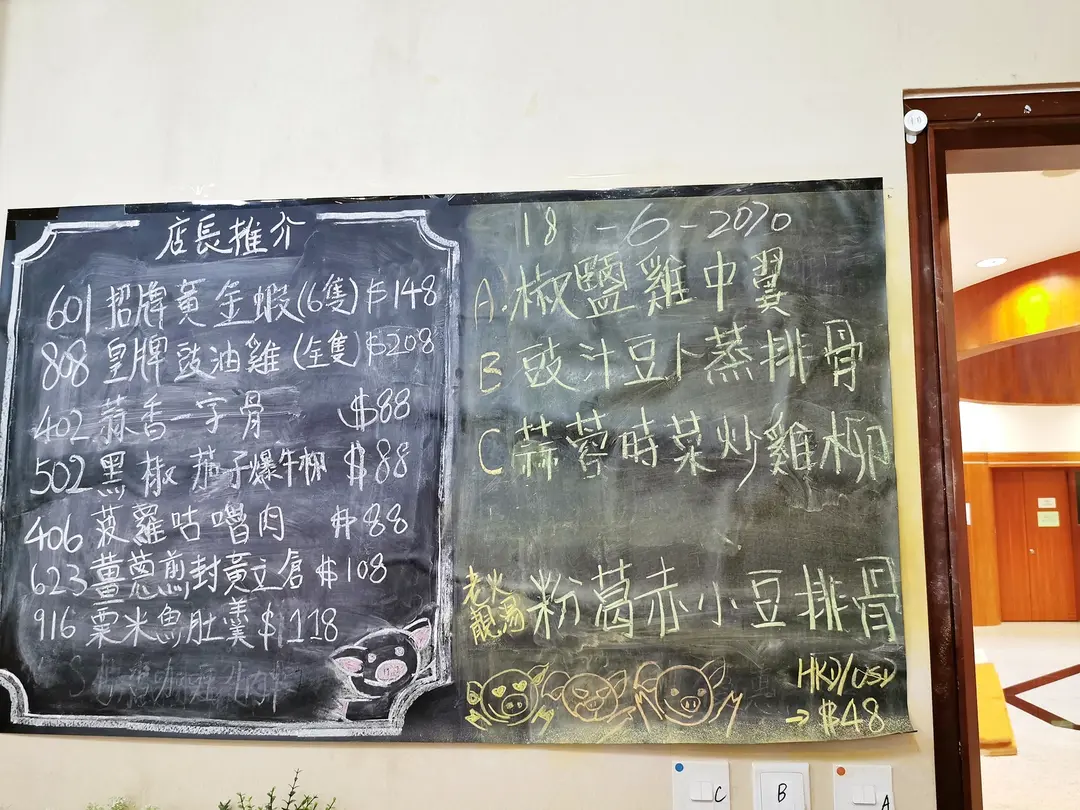 店長推介
601 招牌黃金蝦(6隻) $148
808 皇牌豉油雞(全隻) $208
402 蒜香一字骨 $88
502 黑椒茄子爆牛柳 $88
406 菠蘿咕嚕肉 $88
623 薑蔥煎封黃立倉 $108
916 粟米魚肚羹 $118
18-6-2020
A. 椒鹽雞中翼
B 豉汁豆卜蒸排骨
C 蒜蓉時菜炒雞柳
老火靚湯 粉葛赤小豆排骨
HKD/USD
→ $48
C
B
A